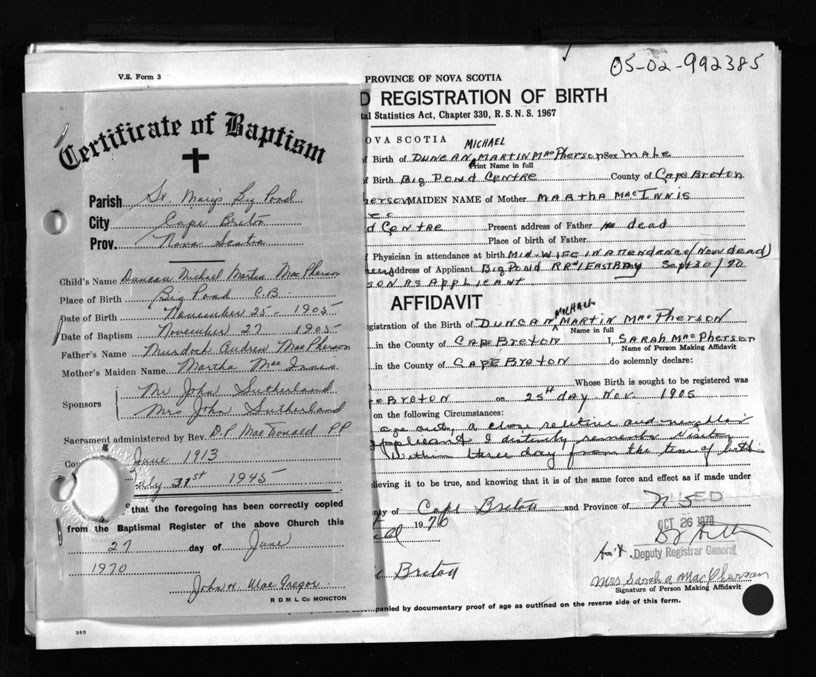 05-02-992385
V.S. Form 3
PROVINCE OF NOVA SCOTIA
D REGISTRATION OF BIRTH
tal Statistics Act, Chapter 330, R.S.N.S. 1967
OVA SCOTIA
MICHAEL
of Birth of DUNCAN MARTIN MacPherson Sex MALE
Print Name in full
f Birth BIG POND CENTRE County of CAPE BRETON
herson MAIDEN NAME of Mother MARTHA MACINNIS
d CENTRE Present address of Father dead
Place of birth of Father
Physician in attendance at birth MID-WIFE IN ATTENDANCE (NOW dead)
Address of Applicant BIG POND RR#1 EAST BAY Sept 30/70
SON AS APPLICANT
AFFIDAVIT
MICHAEL
gistration of the Birth of DUNCAN MARTIN MacPHERSON
Name in full
in the County of CAPE BRETON I, SARAH MacPherson
Name of Person Making Affidavit
in the County of CAPE BRETON do solemnly declare:
Whose Birth is sought to be registered was
e BRETON on 25th day Nov. 1905
on the following Circumstances:
age only, a close relative and
applicant I
within three day from the time of birth
lieving it to be true, and knowing that it is of the same force and effect as if made under
nty of Cape Breton and Province of N.S.
1970
OCT 26 1970
Deputy Registrar General
Breton
Mrs Sarah a MacPherson
Signature of Person Making Affidavit
panied by documentary proof of age as outlined on the reverse side of this form.
Certificate of Baptism
Parish St. Mary's Big Pond
City Cape Breton
Prov. Nova Scotia
Child's Name Duncan Michael Martin MacPherson
Place of Birth Big Pond C.B.
Date of Birth November 25 - 1905
Date of Baptism November 27 1905
Father's Name Murdock Andrew MacPherson
Mother's Maiden Name Martha MacInnis
Sponsors Mr John Sutherland
Mrs John Sutherland
Sacrament administered by Rev. D.P. MacDonald PP
June 1913
July 31st 1945
that the foregoing has been correctly copied
from the Baptismal Register of the above Church this
27 day of June
1970
John H. MacGregor
R D M L Co MONCTON